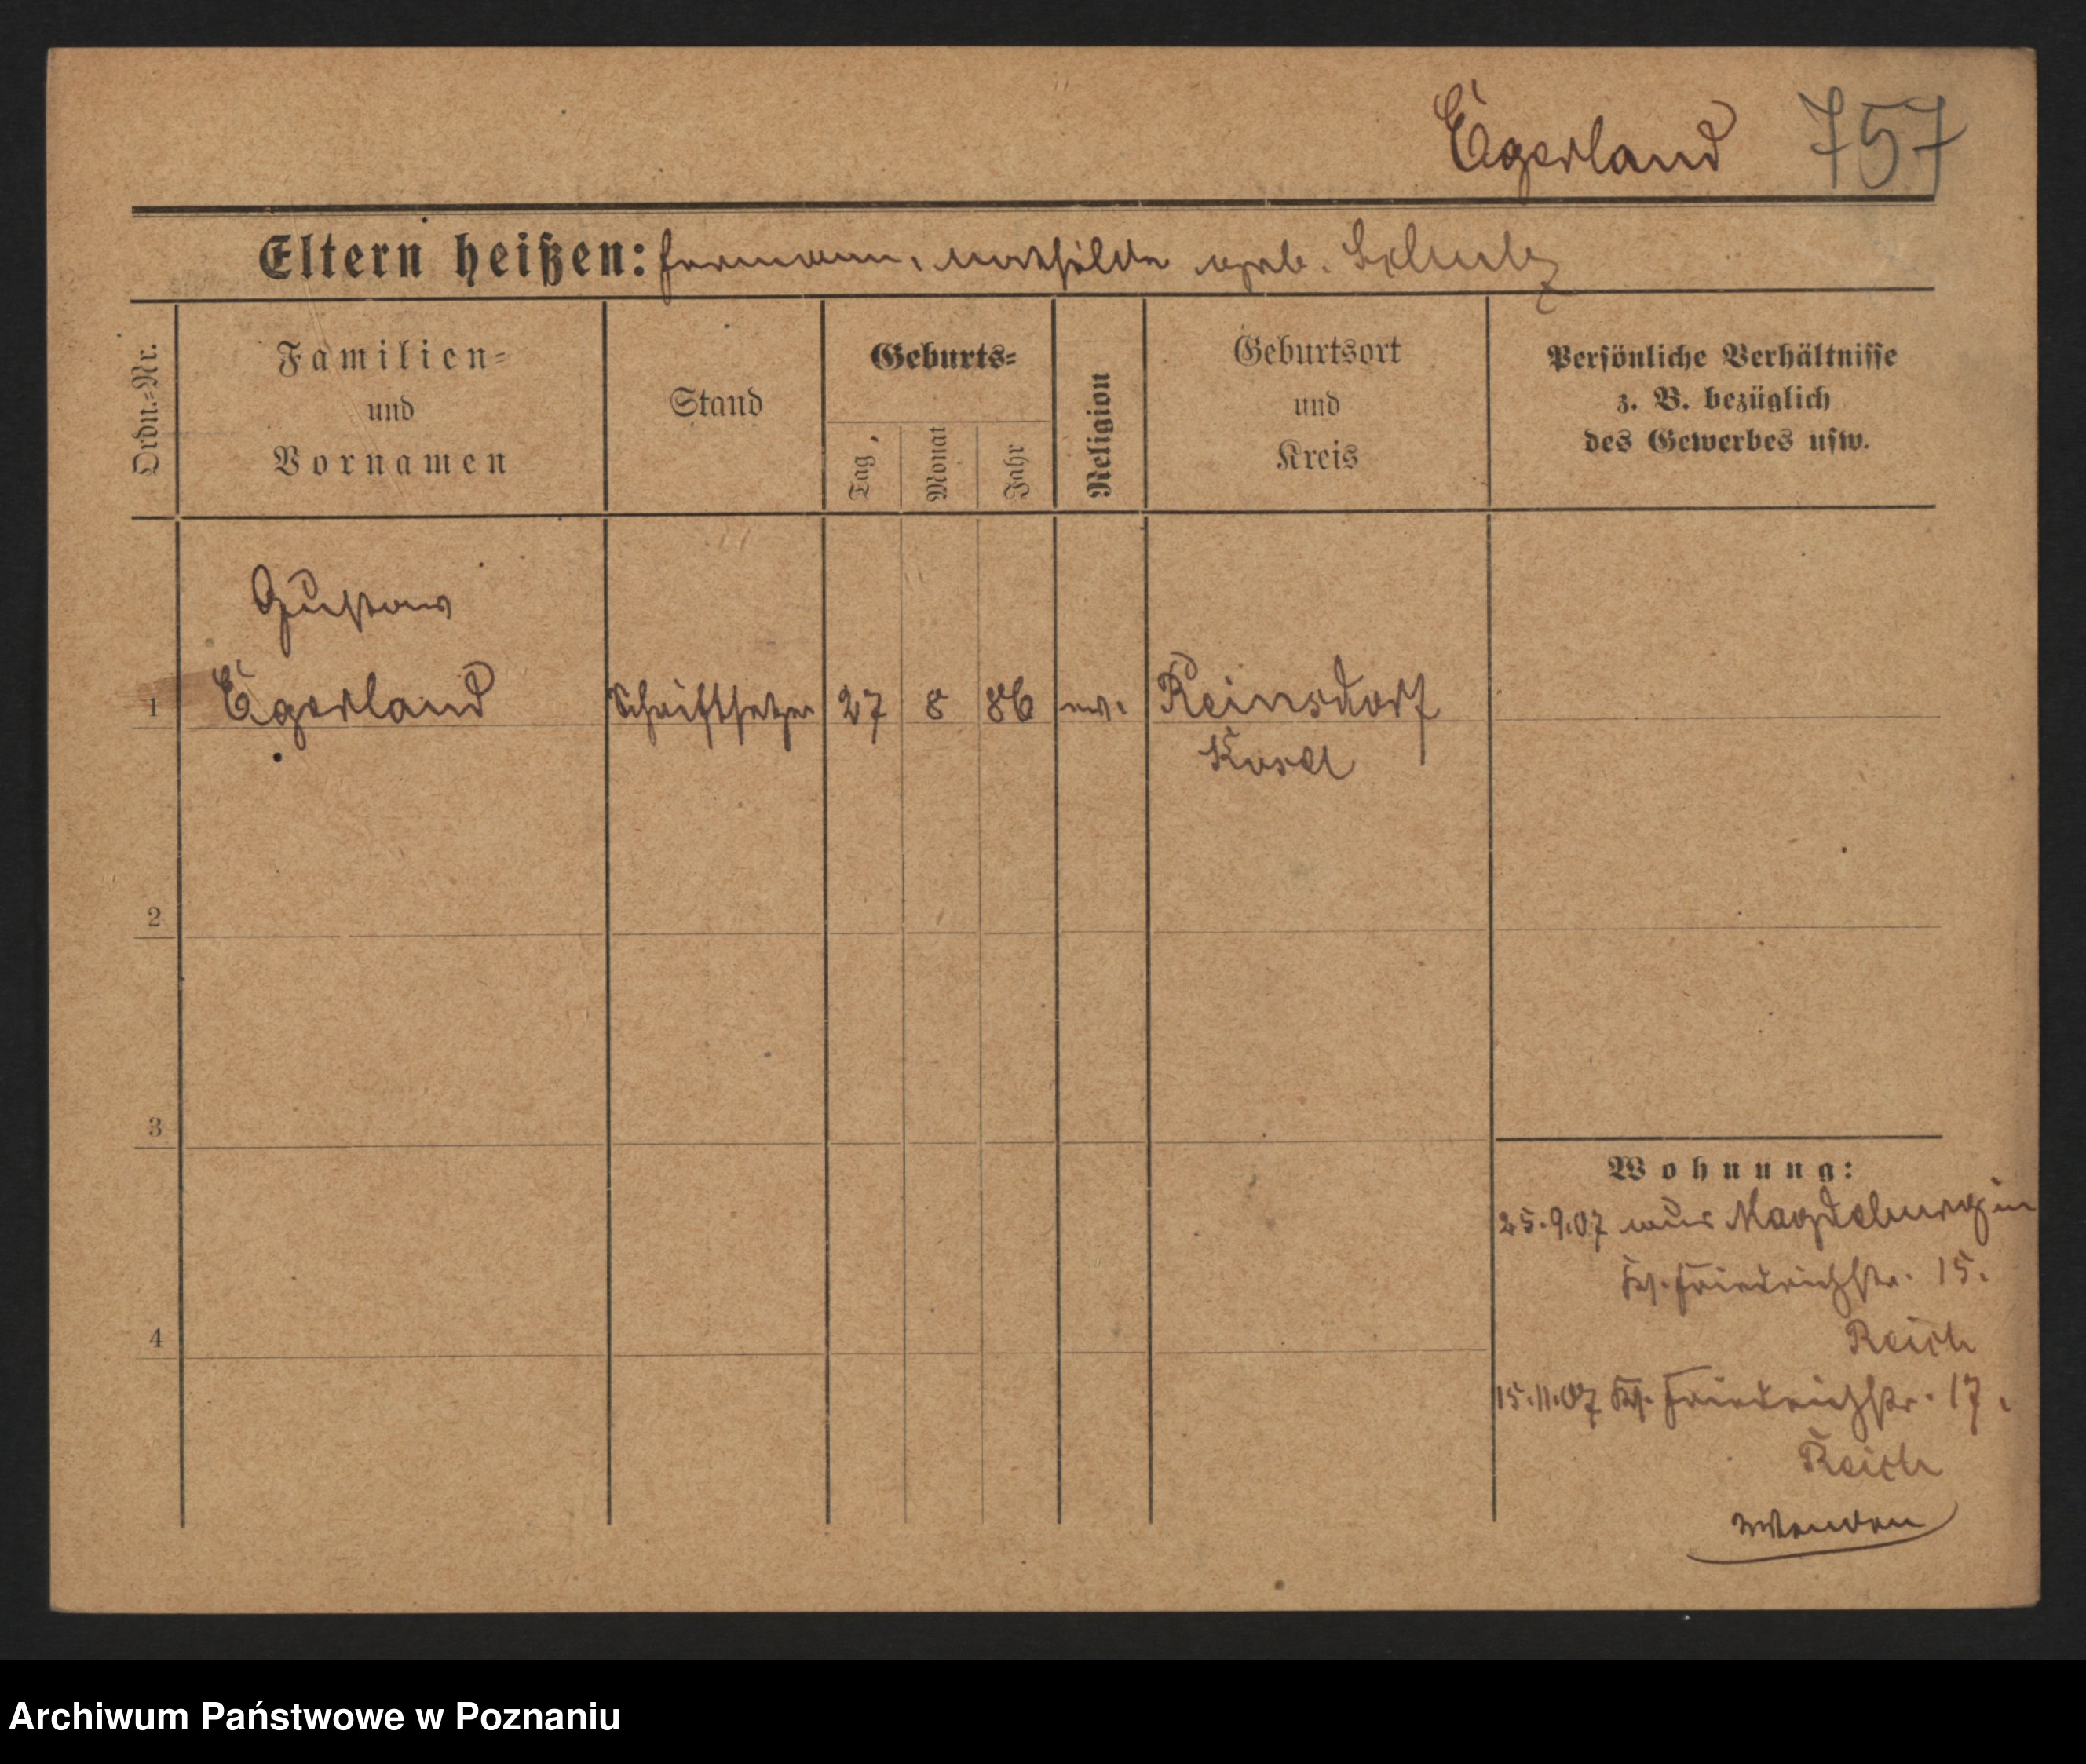 Egerland 757
Eltern heißen: Hermann, Mathilde geb. Schulz
Ordn.=Nr.
Familien=
und
Vornamen
Stand
Geburts=
Tag
Monat
Jahr
Religion
Geburtsort
und
Kreis
Persönliche Verhältnisse
z. B. bezüglich
des Gewerbes usw.
Gustav
1 Egerland Schriftsetzer 27 8 86 ev. Reinsdorf
Kosel
2
3
4
Wohnung:
25.9.07 aus Magdeburg in
Friedrichstr. 15.
Reich
15.11.07 Friedrichstr. 17.
Reich
Wenden
Archiwum Państwowe w Poznaniu